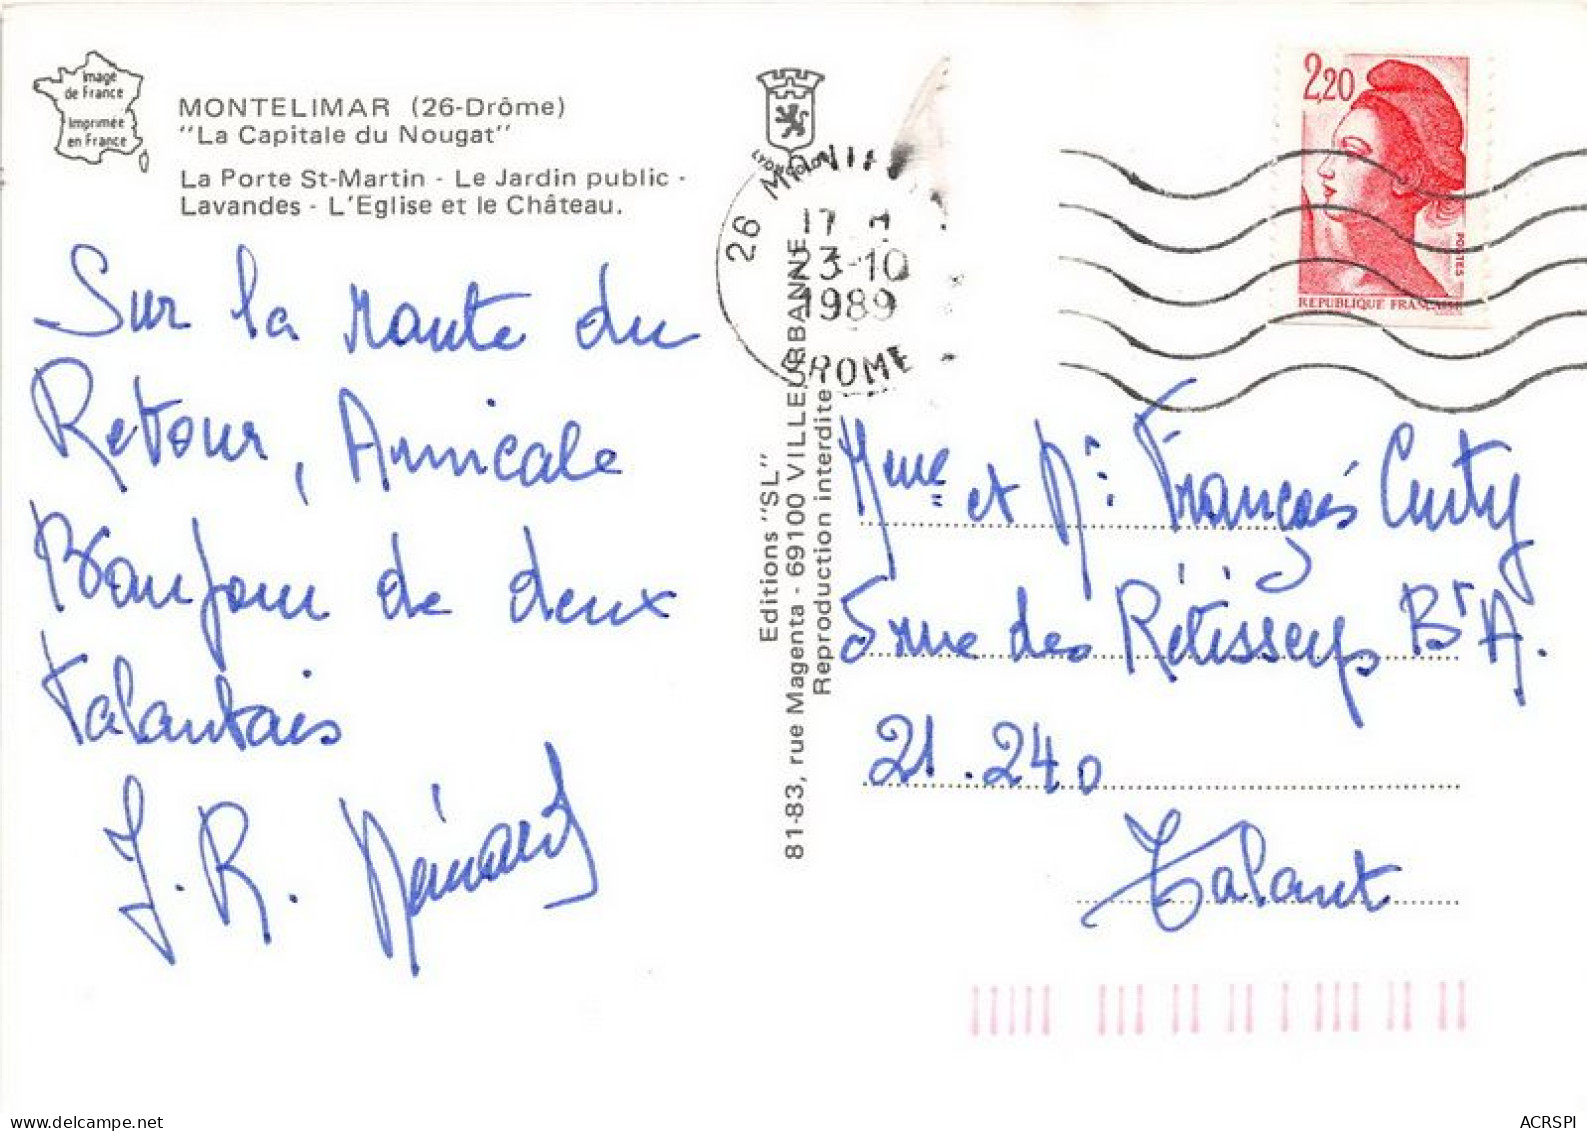 Image
de France
Imprimée
en France
MONTELIMAR (26-Drôme)
"La Capitale du Nougat"
La Porte St-Martin - Le Jardin public -
Lavandes - L'Eglise et le Château.
Sur la Route du
Retour, Amicale
Bonjour de deux
Talantais
J. R. Rénard
Editions "SL"
81-83, rue Magenta - 69100 VILLEURBANNE
Reproduction interdite
26
17
23-10
1989
DROME
2,20
POSTES
REPUBLIQUE FRANÇAISE
Mme et Mr François
5 rue des Bt A.
21.240
Talant
ACRSPI